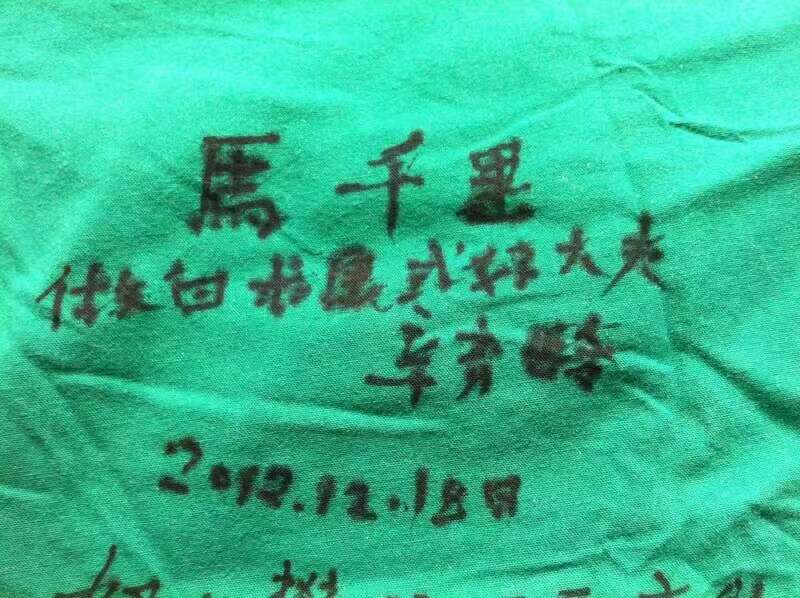 馬千里
做白求恩式好大夫
辛育齡
2012.12.18日